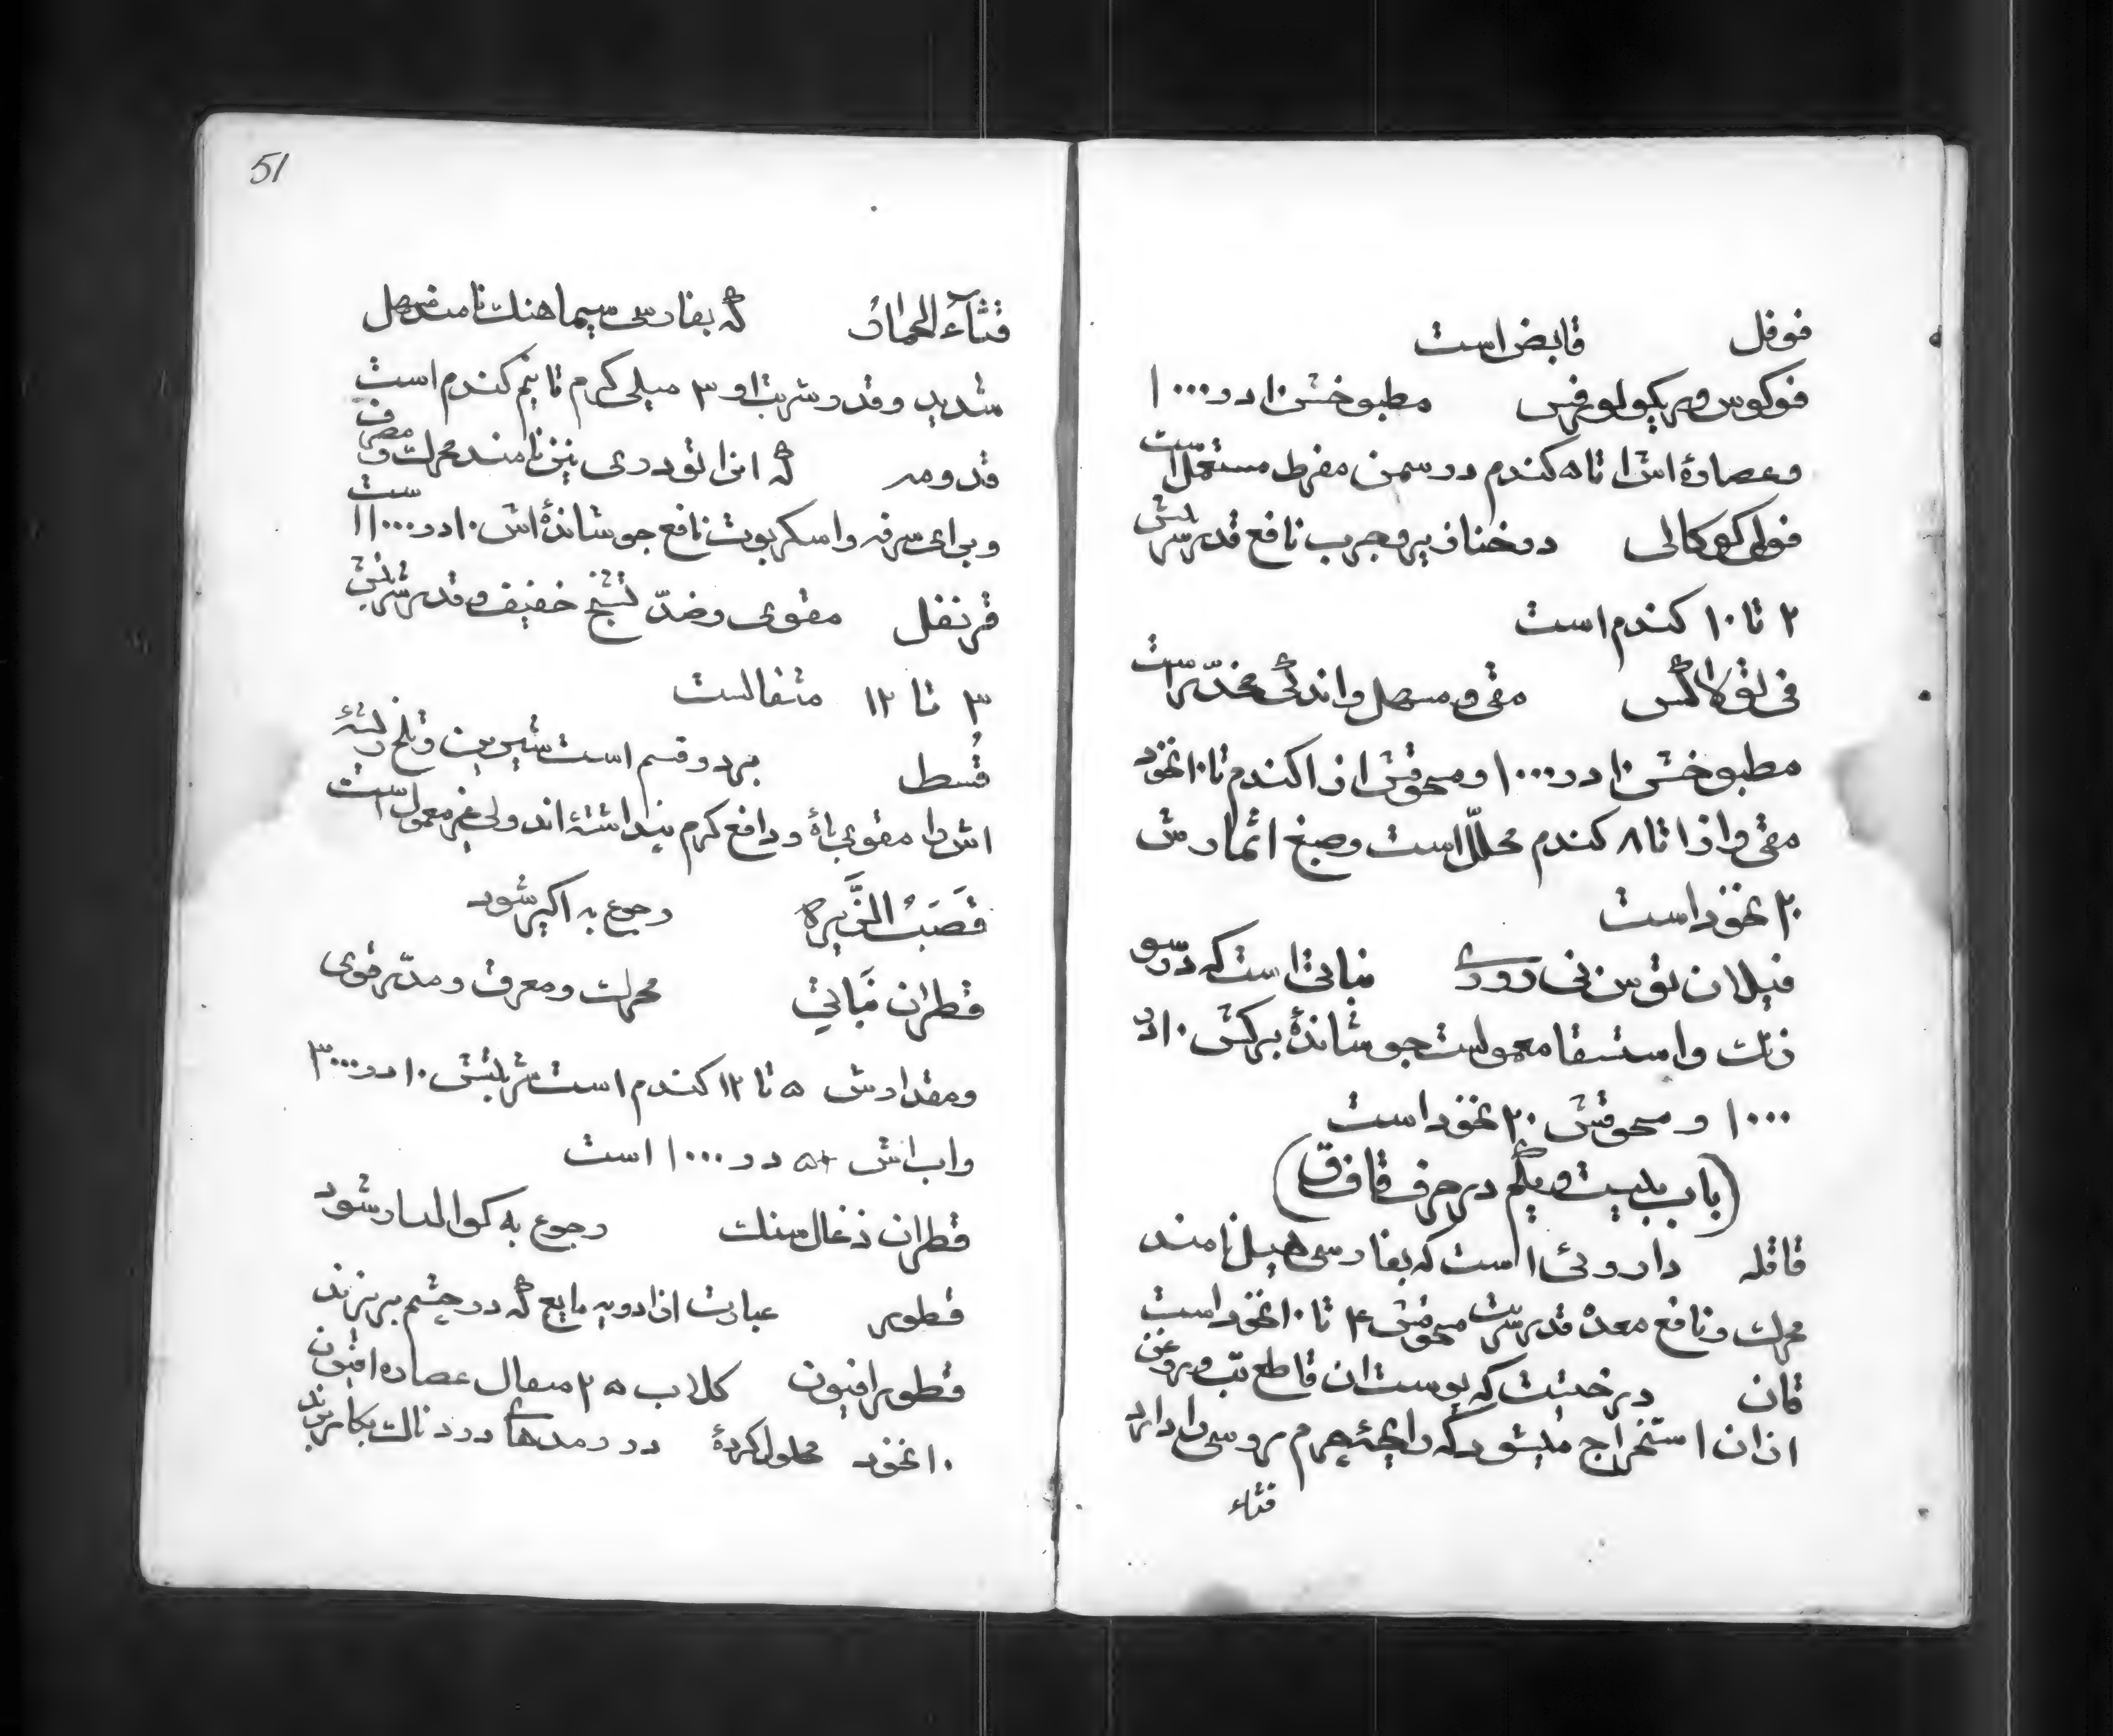 فوفل قابض است
فوکوس وریکولوفس مطبوخش ۱۰ در ۱۰۰۰
وعصارهٔ اش ۱ تا ۵ کندم در سمن مفرط مستعمل است
فولی کوکالی در خنازیر و جرب نافع قدر شربتش
۲ تا ۱۰ کندم است
فی تولاکس مقی و مسهل و اندکی مخدّر است
مطبوخش ۱۰ در ۱۰۰۰ و مسحوقش از ۱ کندم تا ۱۰ نخود
مقی و از ۱ تا ۸ کندم محلّل است و صبغ اثمارش
۲۰ نخود است
فیلان توس نی روری نباتی است که در سو
زنک و استسقا معمولست جوشاندهٔ برکش ۱۰ در
۱۰۰۰ و مسحوقش ۲۰ نخود است
(باب بیست و یکم در حرف قاف ق)
قاقله داروئی است که بفارسی هیل نامند
محرک و نافع معده قدر شربت مسحوقش ۴ تا ۱۰ نخود است
قان درختیست که پوست ان قاطع تب و روغن
از ان استخراج میشود که رایحهٔ چرم روسی را دارد
قثاء
51
قثآء الحمار که بفارسی سیماهنک نامند مسهل
شدید و قدر شربت او ۳ میلی کرم تا نیم کندم است
قدومه که انرا تودری نیز نامند محرک و معرق
و برای سرفه و اسکربوت نافع جوشاندهٔ اش ۱۰ در ۱۰۰۰ است
قرنفل مقوی و ضدّ تشنج خفیف و قدر شربتش
۳ تا ۱۲ مثقالست
قُسط بر دو قسم است شیرین و تلخ ریشهٔ
اش را مقوی باه و دافع کرم پنداشته اند ولی غیر معمول است
قَصَبُ الذَّریره رجوع به اکیر شود
قطران نَباتي محرک و معرق و مدّر قوی
و مقدارش ۵ تا ۱۲ کندم است شربتش ۱۰ در ۳۰۰۰
و اب اش ۵ در ۱۰۰۰ است
قطران ذغال سنک رجوع به کوالتار شود
قطور عبارت از ادویه مایع که در چشم بریزند
قطور افیون کلاب ۲۵ مثقال عصاره افیون
۱۰ نخود محلول کردهٔ در رمدهای دردناک بکار برند